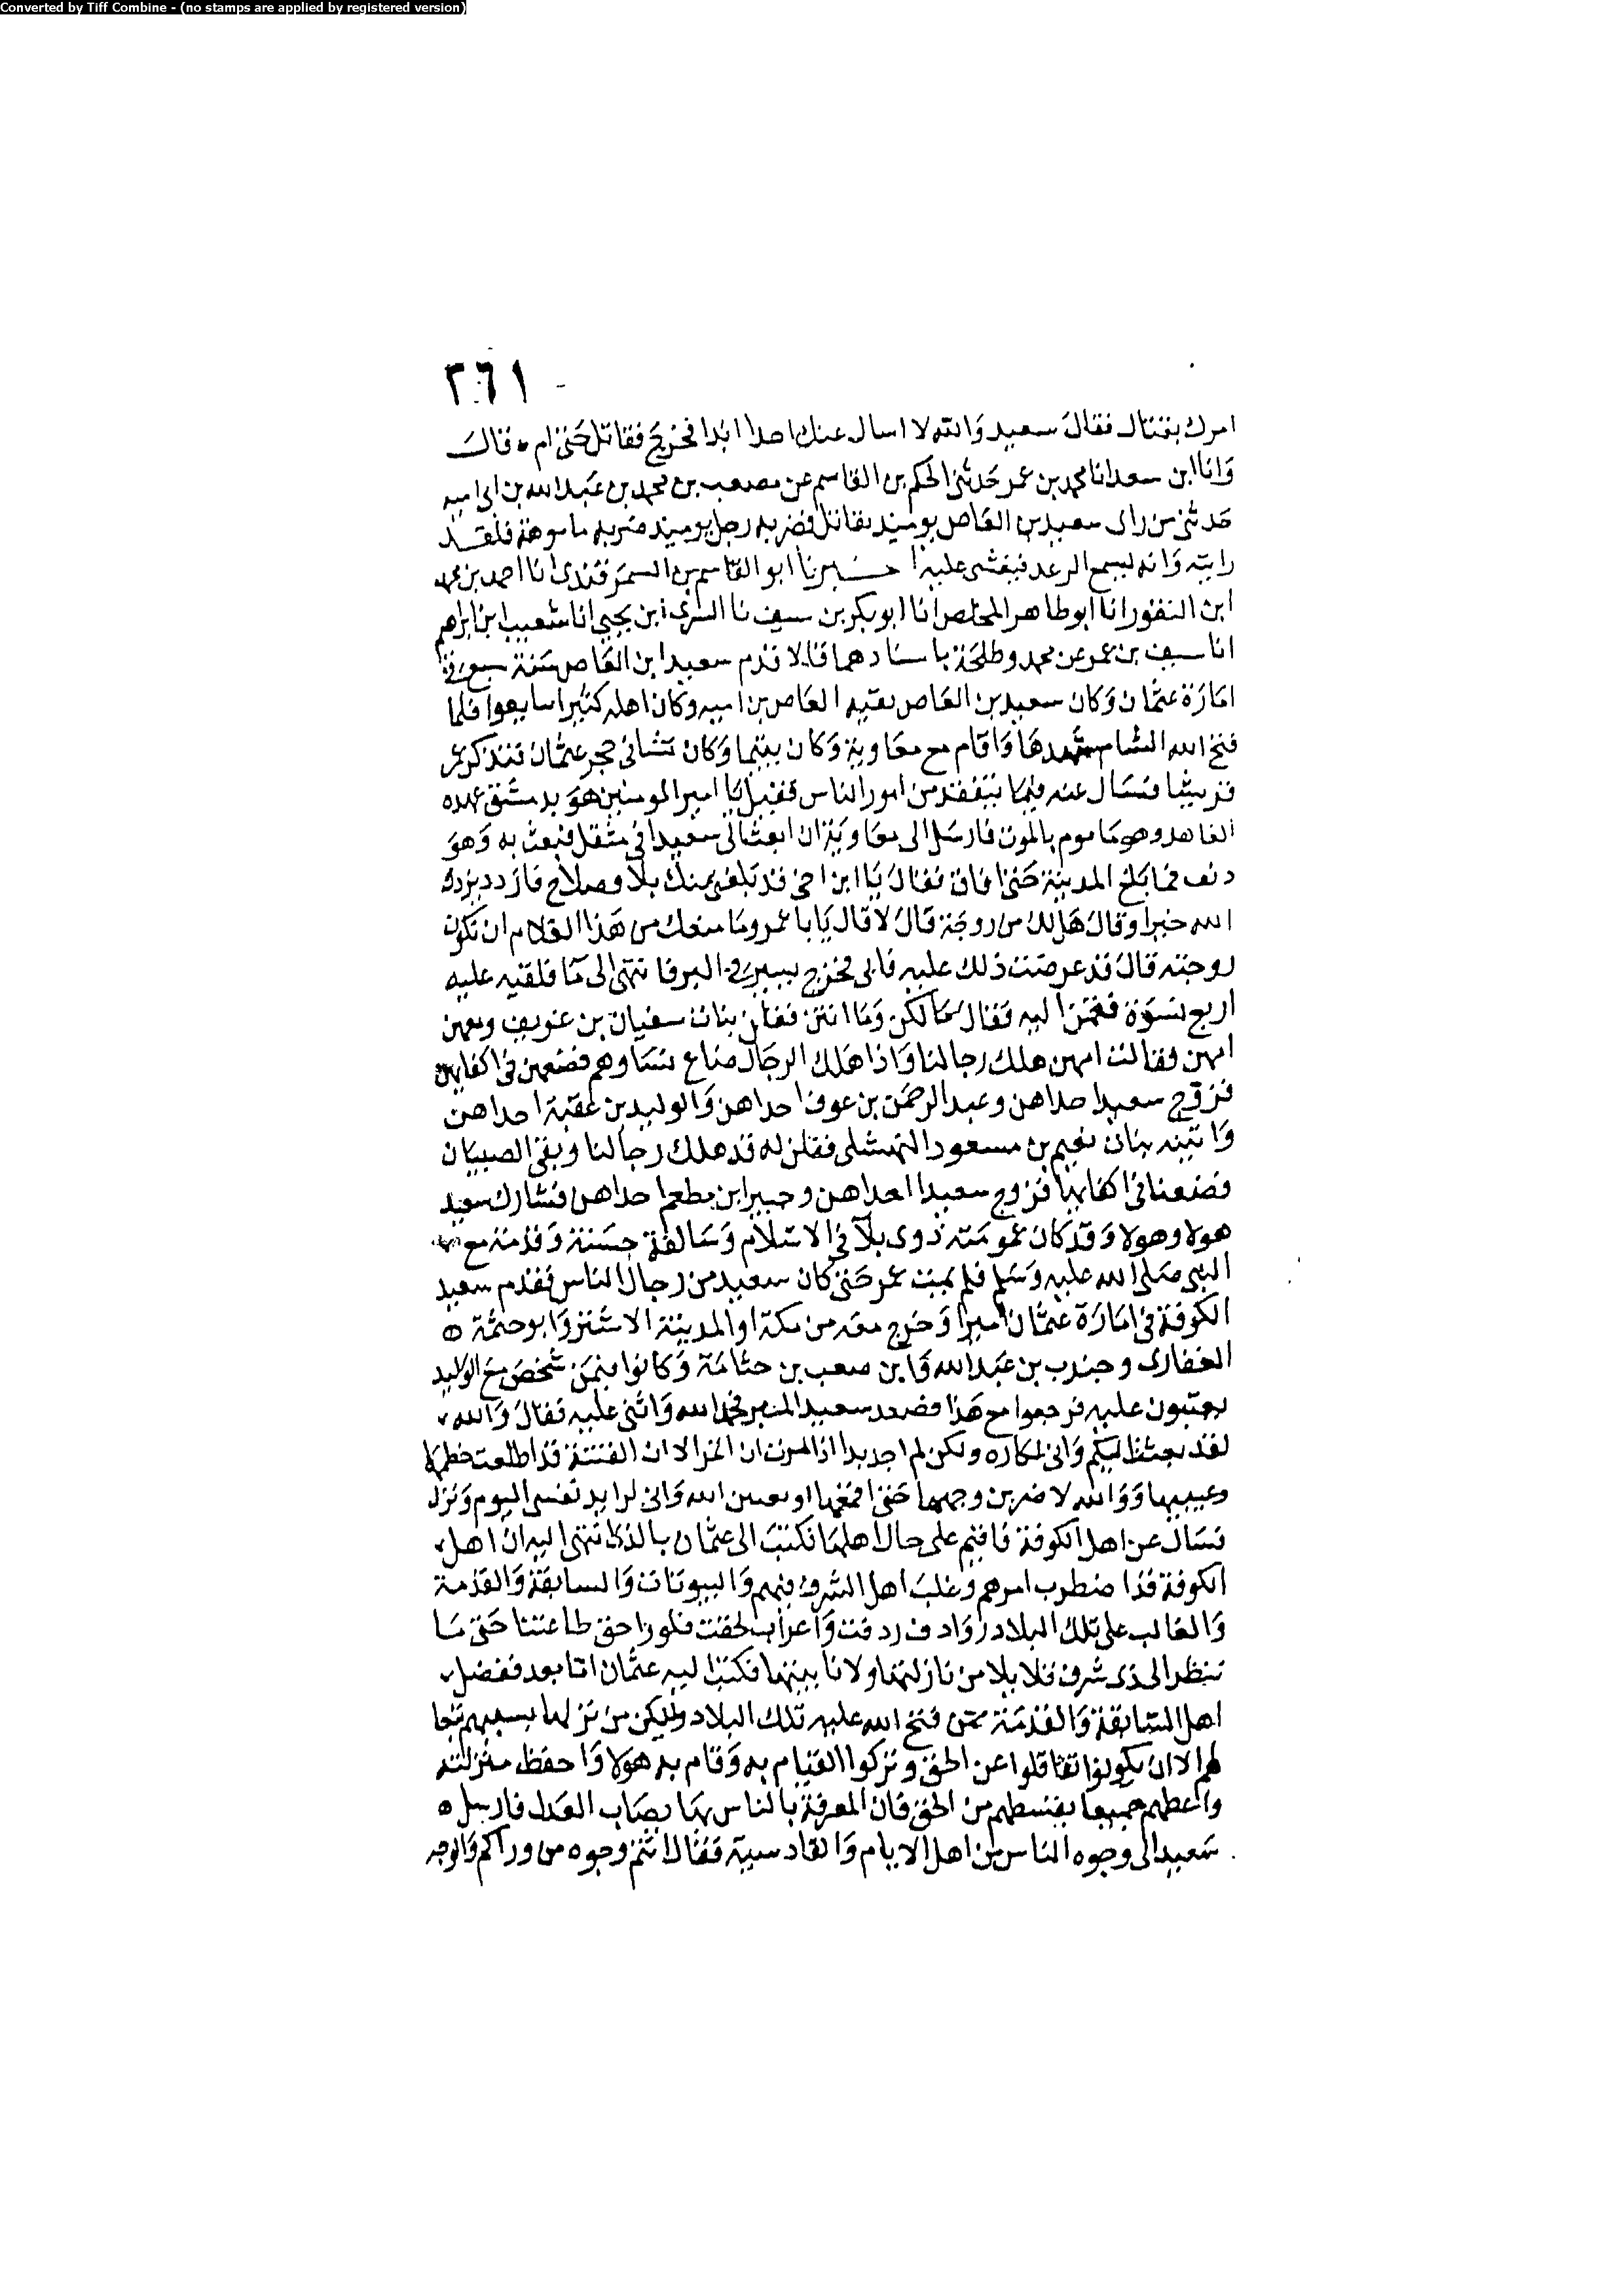 Converted by Tiff Combine - (no stamps are applied by registered version)
٢٦١
امرك بقتال فقال سعيد والله لا اسال عنك احدا ابدا فخرج فقاتل حتى ام قال
وانا ابن سعد انا محمد بن عمر حدثنى الحكم بن القاسم عن مصعب بن محمد بن عبد الله بن ابى اميه
حدثنى من راى سعيد بن العاص يوميذ يقاتل فضربه رجل يوميذ ضربه ماموهة فلقد
رايته وانه ليسمع الرعد فيغشى عليه اخبرنا ابو القاسم بن السمرقندى انا احمد بن محمد
ابن النقور انا ابو طاهر المخلص انا ابو بكر بن سيف نا السرى ابن يحيى انا شعيب بن ابرهيم
انا سيف بن عمر عن محمد وطلحة باسنادهما قالا قدم سعيد ابن العاص سنة سبع فى
امارة عثمان وكان سعيد بن العاص بقيه العاص بن اميه وكان اهله كثيرا سابعوا فلما
فتح الله الشام شهدها واقام مع معاوية وكان يتيما وكان نشا فى حجر عثمان فتذكر عمر
قريشا فسال عنه فيما يتفقد من امور الناس فقيل يا امير المومنين هو بدمشق عهده
العاهد وهو ماموم بالموت فارسل الى معاوية ان ابعث الى سعيدا فى مثقل فبعث به وهو
دنف فما بلغ المدينة حتى افاق فقال يا ابن اخى قد بلغنى منك بلا وصلاح فازدد يزدك
الله خيرا وقال هل لك من زوجة قال لا قال يا با عمرو ما منعك من هذا الغلام ان تكون
زوجته قال قد عرضت ذلك عليه فابى فخرج يسير فى البر فانتهى الى ما فلقيه عليه
اربع نسوة فقمن اليه فقال ما لكن وما انتن فقلن بنات سفيان بن عويف ومعهن
امهن فقالت امهن هلك رجالنا واذا هلك الرجال ضاع نساوهم فضعهن فى اكفايهن
فزوج سعيدا احداهن وعبد الرحمن بن عوف احداهن والوليد بن عقبة احداهن
واتينه بنات نعيم بن مسعود النهشلى فقلن له قد هلك رجالنا وبقى الصبيان
فضعنا فى اكفاينا فزوج سعيدا احداهن وجبير ابن مطعم احداهن فشارك سعيد
هولا وهولا وقد كان عمومته ذوى بلا فى الاسلام وسالفة حسنة وقدمة مع
النبى صلى الله عليه وسلم فلم يمت عمر حتى كان سعيد من رجال الناس فقدم سعيد
الكوفة فى امارة عثمان اميرا وخرج معه من مكة او المدينة الاشتر وابو حتمة
الغفارى وجندب بن عبد الله وابن صعب بن جثامة وكانوا فيمن شخص مع الوليد
يعتبون عليه فرجعوا مع هذا فصعد سعيد المنبر فحمد الله واثنى عليه فقال والله
لقد بعثت اليكم وانى لكاره ولكن لم اجد بدا اذ امرت ان الا ان الفتنة قد اطلعت خطمها
وعينيها ووالله لاضربن وجهها حتى اقمعها او يعين الله وانى لرايد نفسى اليوم ونزل
فسال عن اهل الكوفة فاقيم على حال اهلها فكتب الى عثمان بالذى انتهى اليه ان اهل
الكوفة قد اضطرب امرهم وغلب اهل الشرف منهم والبيوتات والسابقة والقدمة
والغالب على تلك البلاد روادف ردفت واعراب لحقت فلو حق طاعتنا حتى ما
ننظر الى ذى شرف ولا بلا من نازلتها ولا نابتتها فكتب اليه عثمان اما بعد ففضل
اهل السابقة والقدمة ممن فتح الله عليه تلك البلاد وليكن من نزلها بسببهم تبعا
لهم الا ان يكونوا تثاقلوا عن الحق وتركوا القيام به وقام به هولا واحفظ منزلته
واعطهم جميعا بقسطهم من الحق فان المعرفة بالناس بها يصاب العدل فارسل
سعيد الى وجوه الناس من اهل الايام والقادسية فقال انتم وجوه من وراكم والوجه